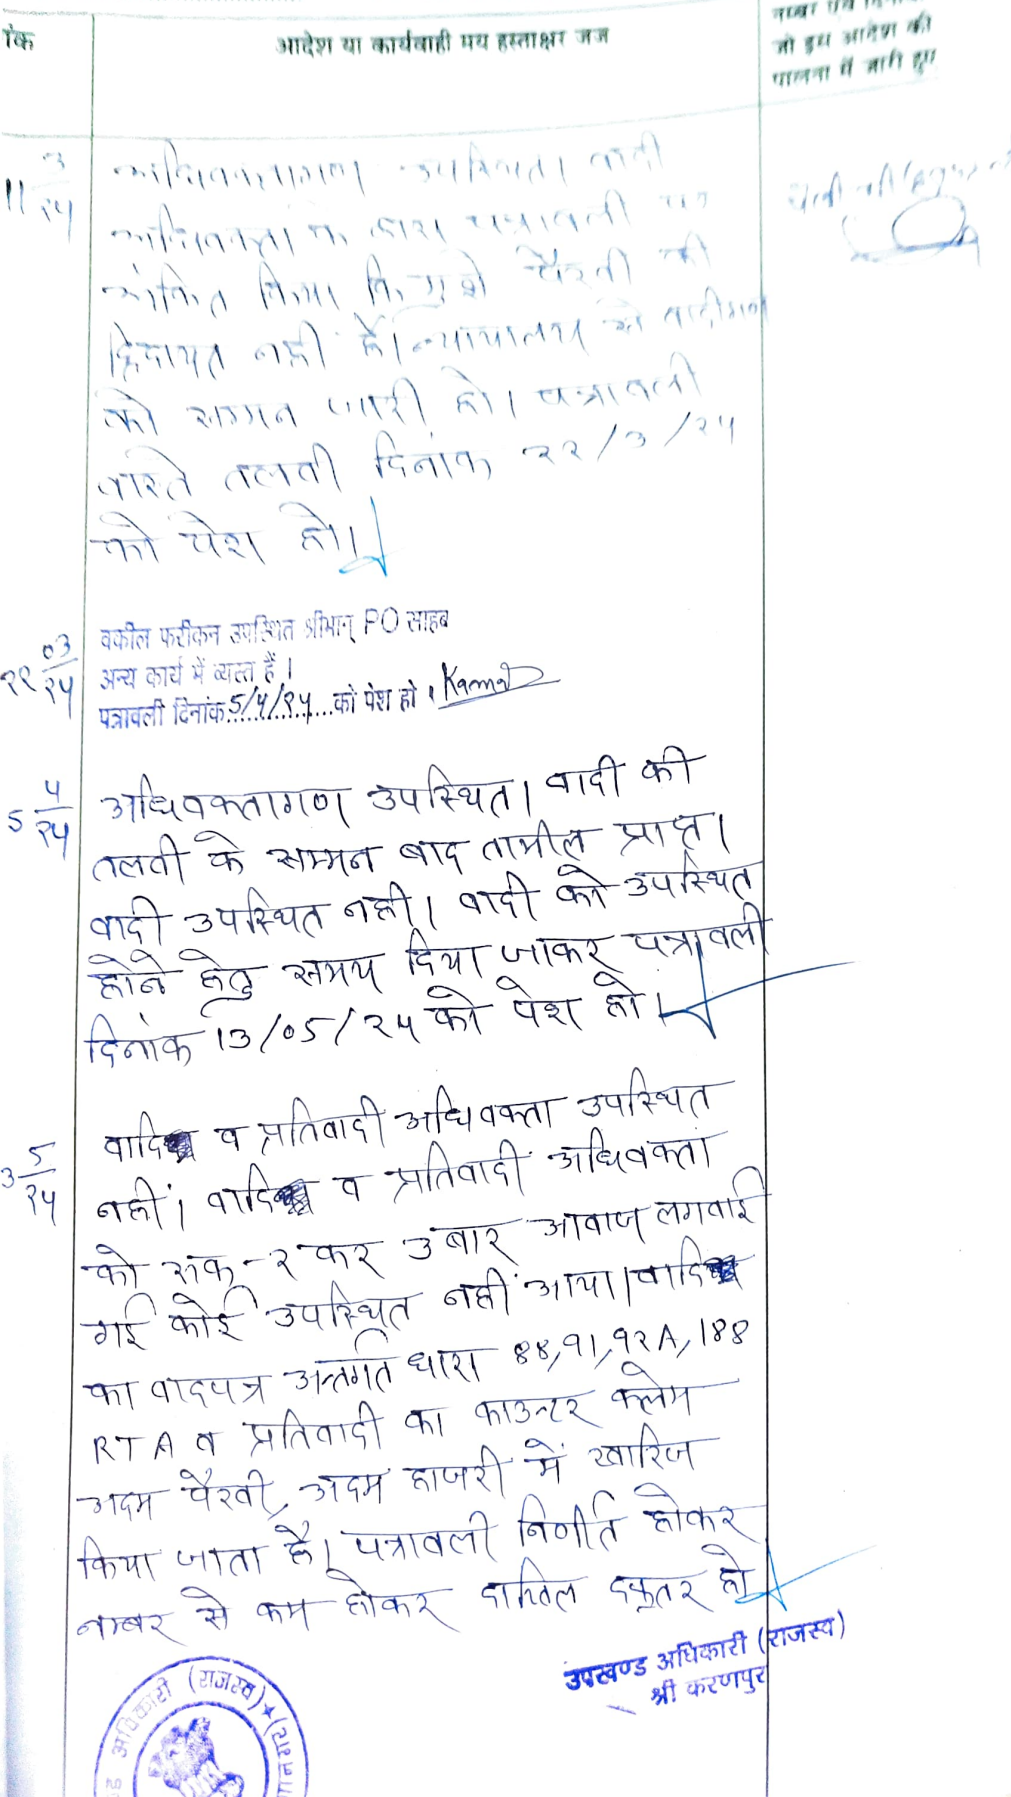 ांक
आदेश या कार्यवाही मय हस्ताक्षर जज
नम्बर एवं
जो इस आदेश की
पालना में जारी हुए
11 3/24
अधिवक्तागण उपस्थित। वादी
अधिवक्ता के द्वारा पत्रावली पर
अंकित किया कि मुझे पैरवी की
हिदायत नहीं है। न्यायालय से वादीगण
को सम्मन जारी हो। पत्रावली
वास्ते तलबी दिनांक २२/3/२५
को पेश हो।
२२ 03/२५
वकील फरीकन उपस्थित श्रीमान् PO साहब
अन्य कार्य में व्यस्त हैं।
पत्रावली दिनांक 5/4/२५ को पेश हो।
5 4/२५
अधिवक्तागण उपस्थित। वादी की
तलबी के सम्मन बाद तामील प्राप्त।
वादी उपस्थित नही। वादी को उपस्थित
होने हेतु समय दिया जाकर पत्रावली
दिनांक 13/05/२५ को पेश हो।
3 5/२५
वादी व प्रतिवादी अधिवक्ता उपस्थित
नहीं। वादी व प्रतिवादी अधिवक्ता
को रूक-२ कर 3 बार आवाज लगवाई
गई कोई उपस्थित नहीं आया। वादी
का वादपत्र अन्तर्गत धारा 88,91,92A,188
RTA व प्रतिवादी का काउन्टर क्लेम
अदम पैरवी, अदम हाजरी में खारिज
किया जाता है। पत्रावली निर्णीत होकर
नम्बर से कम होकर दाखिल दफ्तर हो
उपखण्ड अधिकारी (राजस्व)
श्री करणपुर
अधिकारी (राजस्व) ★